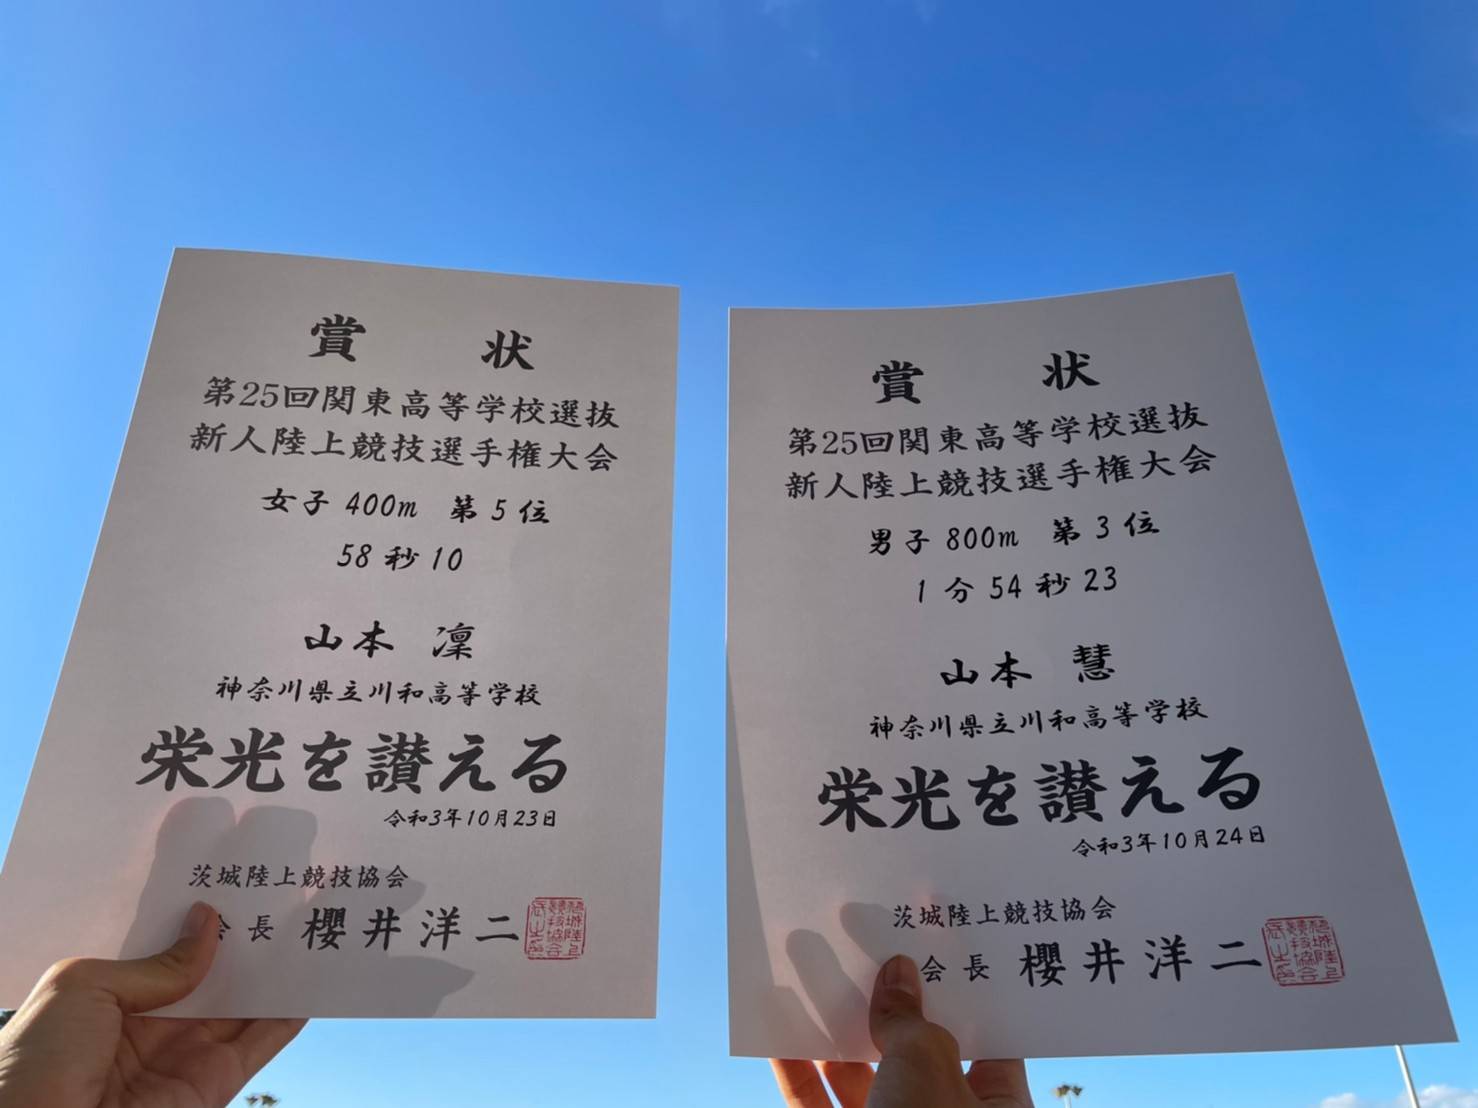 賞 状
第25回関東高等学校選抜
新人陸上競技選手権大会
女子 400m 第 5 位
58 秒 10
山本 凜
神奈川県立川和高等学校
栄光を讃える
令和3年10月23日
茨城陸上競技協会
会 長 櫻井洋二
賞 状
第25回関東高等学校選抜
新人陸上競技選手権大会
男子 800m 第 3 位
1 分 54 秒 23
山本 慧
神奈川県立川和高等学校
栄光を讃える
令和3年10月24日
茨城陸上競技協会
会 長 櫻井洋二